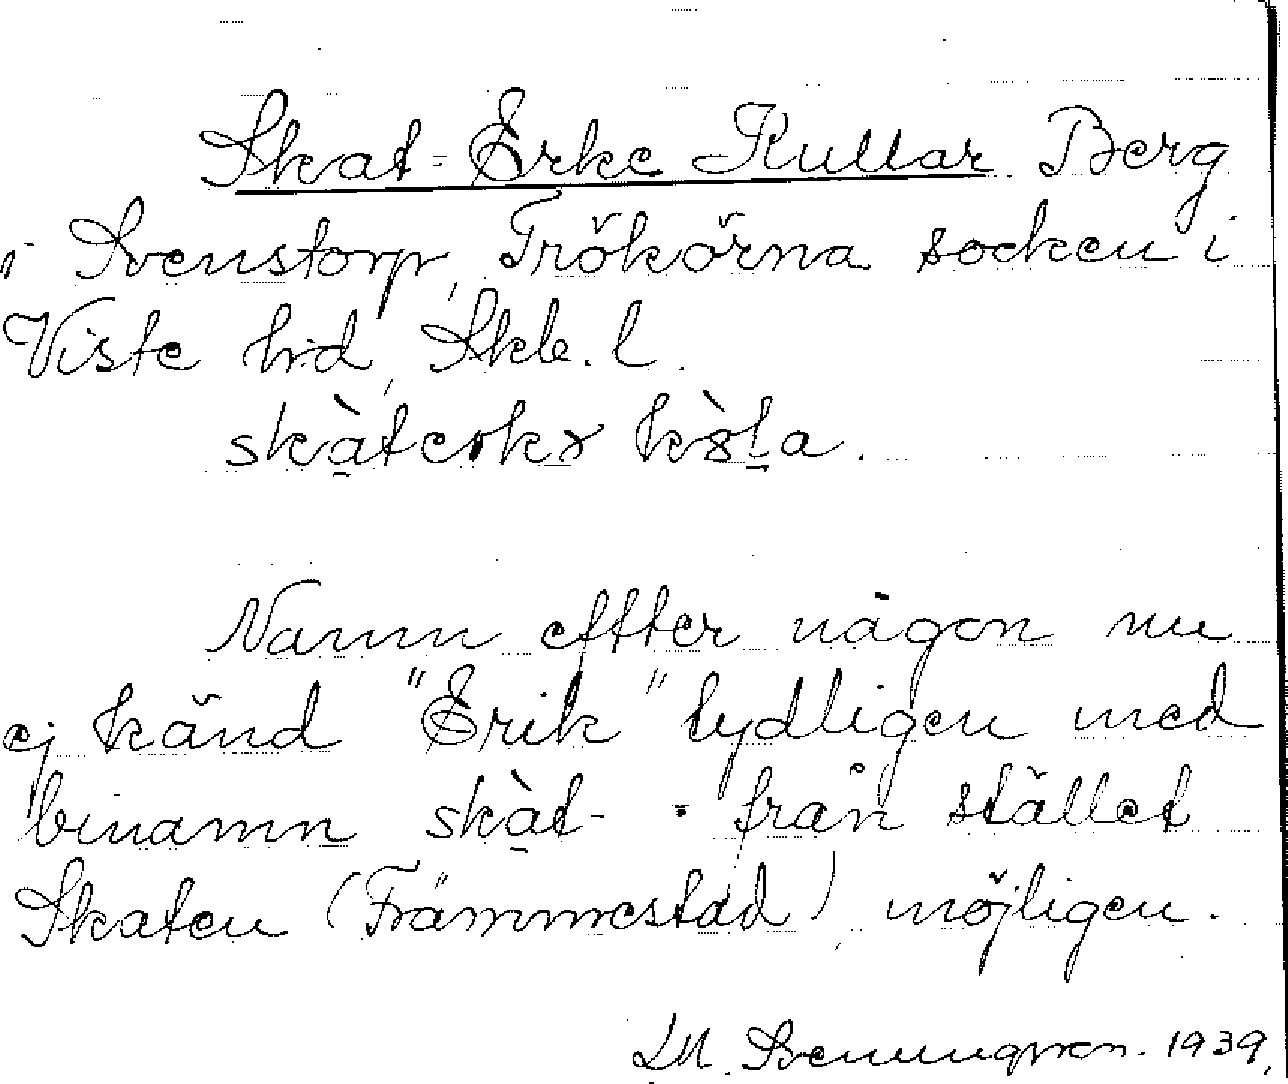 Skat-Erke Kullar Berg
i Svenstorp, Trökörna socken i
Viste hd, Skb. l.
skàterkɤ kɤ̀la.
Namn efter någon nu
ej känd "Erik" tydligen med
binamn skàt- från stället
Skaten (Främmestad) möjligen.
1939.